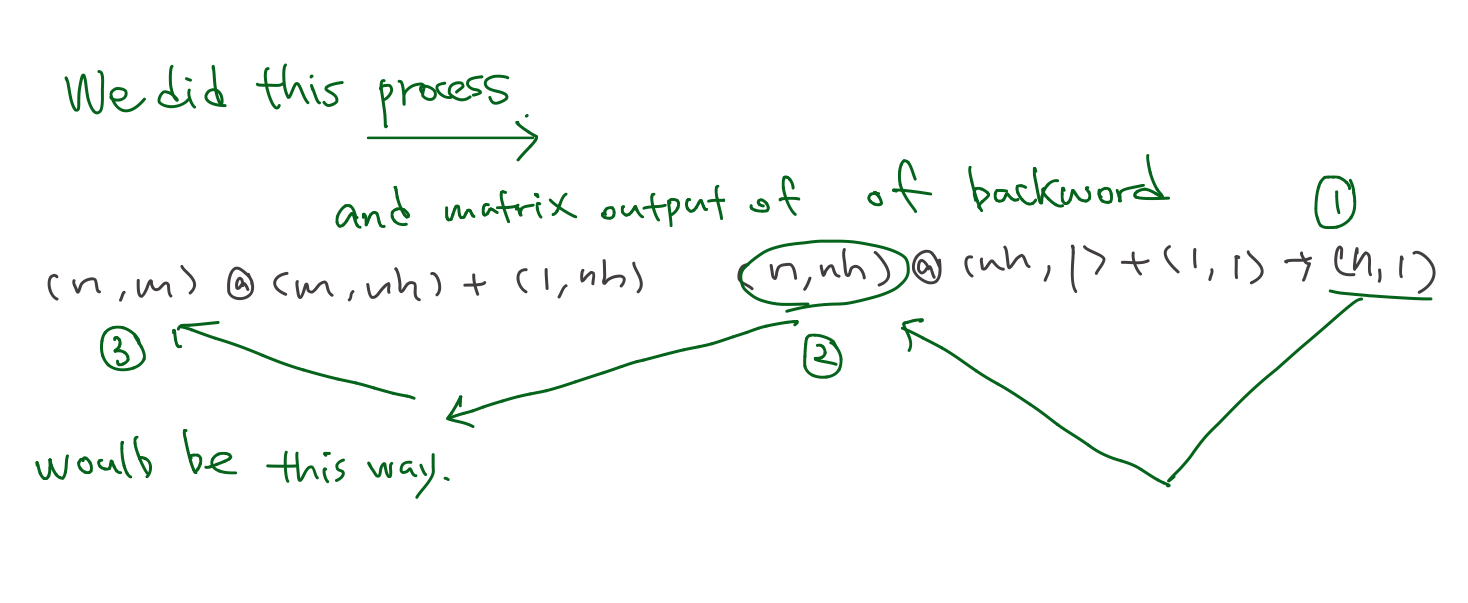 We did this process.
and matrix output of of backword
①
(n,m) @ (m,nh) + (1,nh) (n,nh) @ (nh,1) + (1,1) → (n,1)
③ ②
would be this way.